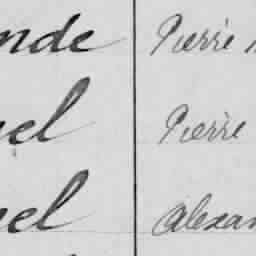 nde Pierre
el Pierre
el Alexan